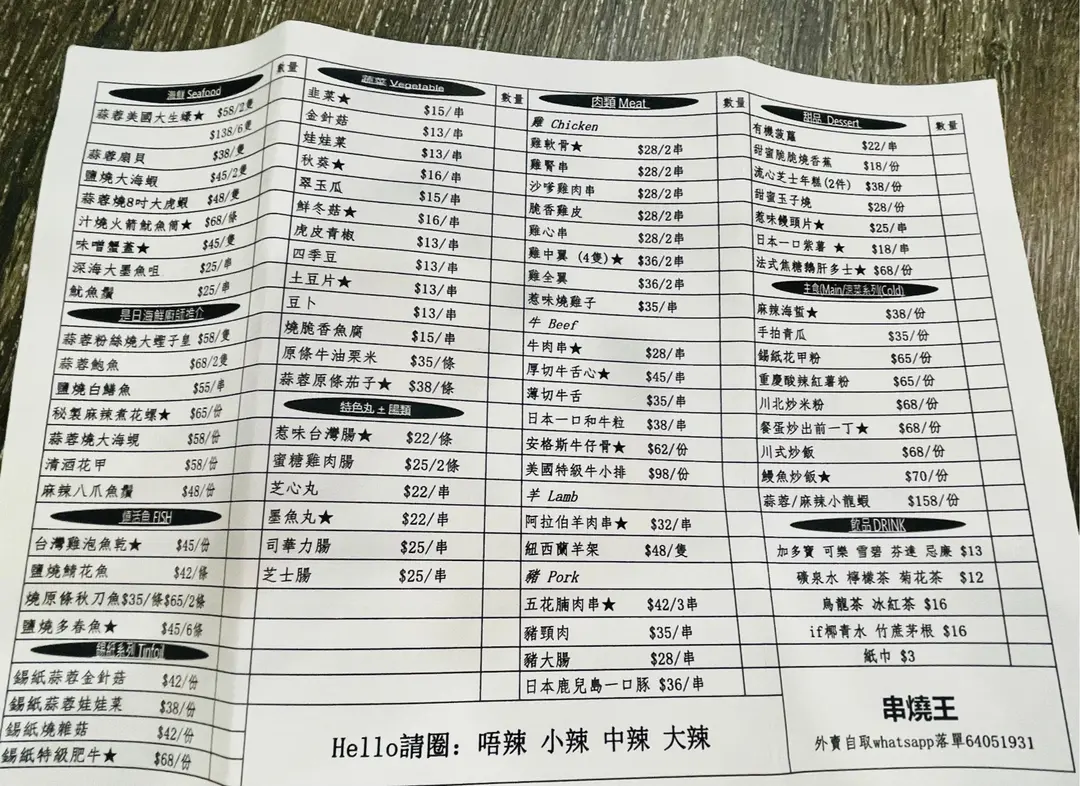 海鮮 Seafood
數量
蒜蓉美國大生蠔★ $58/2隻
$138/6隻
蒜蓉扇貝 $38/隻
鹽燒大海蝦 $45/2隻
蒜蓉燒8吋大虎蝦 $48/隻
汁燒火箭魷魚筒★ $68/條
味噌蟹蓋★ $45/隻
深海大墨魚咀 $25/串
魷魚鬚 $25/串
是日海鮮廚師推介
蒜蓉粉絲燒大蟶子皇 $58/隻
蒜蓉鮑魚 $68/2隻
鹽燒白鱔魚 $55/串
秘製麻辣煮花螺★ $65/份
蒜蓉燒大海蜆 $58/份
清酒花甲 $58/份
麻辣八爪魚鬚 $48/份
FISH
台灣雞泡魚乾★ $45/份
鹽燒鯖花魚 $42/條
燒原條秋刀魚$35/條$65/2條
鹽燒多春魚★ $45/6條
錫紙系列 Tinfoil
錫紙蒜蓉金針菇 $42/份
錫紙蒜蓉娃娃菜 $38/份
錫紙燒雜菇 $42/份
錫紙特級肥牛★ $68/份
蔬菜 Vegetable
數量
韭菜★ $15/串
金針菇 $13/串
娃娃菜 $13/串
秋葵★ $16/串
翠玉瓜 $15/串
鮮冬菇★ $16/串
虎皮青椒 $13/串
四季豆 $13/串
土豆片★ $13/串
豆卜 $13/串
燒脆香魚腐 $15/串
原條牛油粟米 $35/條
蒜蓉原條茄子★ $38/條
特色丸 + 腸類
惹味台灣腸★ $22/條
蜜糖雞肉腸 $25/2條
芝心丸 $22/串
墨魚丸★ $22/串
司華力腸 $25/串
芝士腸 $25/串
肉類 Meat
數量
雞 Chicken
雞軟骨★ $28/2串
雞腎串 $28/2串
沙嗲雞肉串 $28/2串
脆香雞皮 $28/2串
雞心串 $28/2串
雞中翼 (4隻)★ $36/2串
雞全翼 $36/2串
惹味燒雞子 $35/串
牛 Beef
牛肉串★ $28/串
厚切牛舌心★ $45/串
薄切牛舌 $35/串
日本一口和牛粒 $38/串
安格斯牛仔骨★ $62/份
美國特級牛小排 $98/份
羊 Lamb
阿拉伯羊肉串★ $32/串
紐西蘭羊架 $48/隻
豬 Pork
五花腩肉串★ $42/3串
豬頸肉 $35/串
豬大腸 $28/串
日本鹿兒島一口豚 $36/串
甜品 Dessert
數量
有機菠蘿 $22/串
甜蜜脆脆燒香蕉 $18/份
流心芝士年糕(2件) $38/份
甜蜜玉子燒 $28/份
惹味饅頭片★ $25/串
日本一口紫薯 ★ $18/串
法式焦糖鵝肝多士★ $68/份
主食(Main/涼菜系列(Cold)
麻辣海蜇★ $38/份
手拍青瓜 $35/份
錫紙花甲粉 $65/份
重慶酸辣紅薯粉 $65/份
川北炒米粉 $68/份
餐蛋炒出前一丁★ $68/份
川式炒飯 $68/份
鰻魚炒飯★ $70/份
蒜蓉/麻辣小龍蝦 $158/份
飲品 DRINK
加多寶 可樂 雪碧 芬達 忌廉 $13
礦泉水 檸檬茶 菊花茶 $12
烏龍茶 冰紅茶 $16
if椰青水 竹蔗茅根 $16
紙巾 $3
Hello請圈: 唔辣 小辣 中辣 大辣
串燒王
外賣自取whatsapp落單64051931